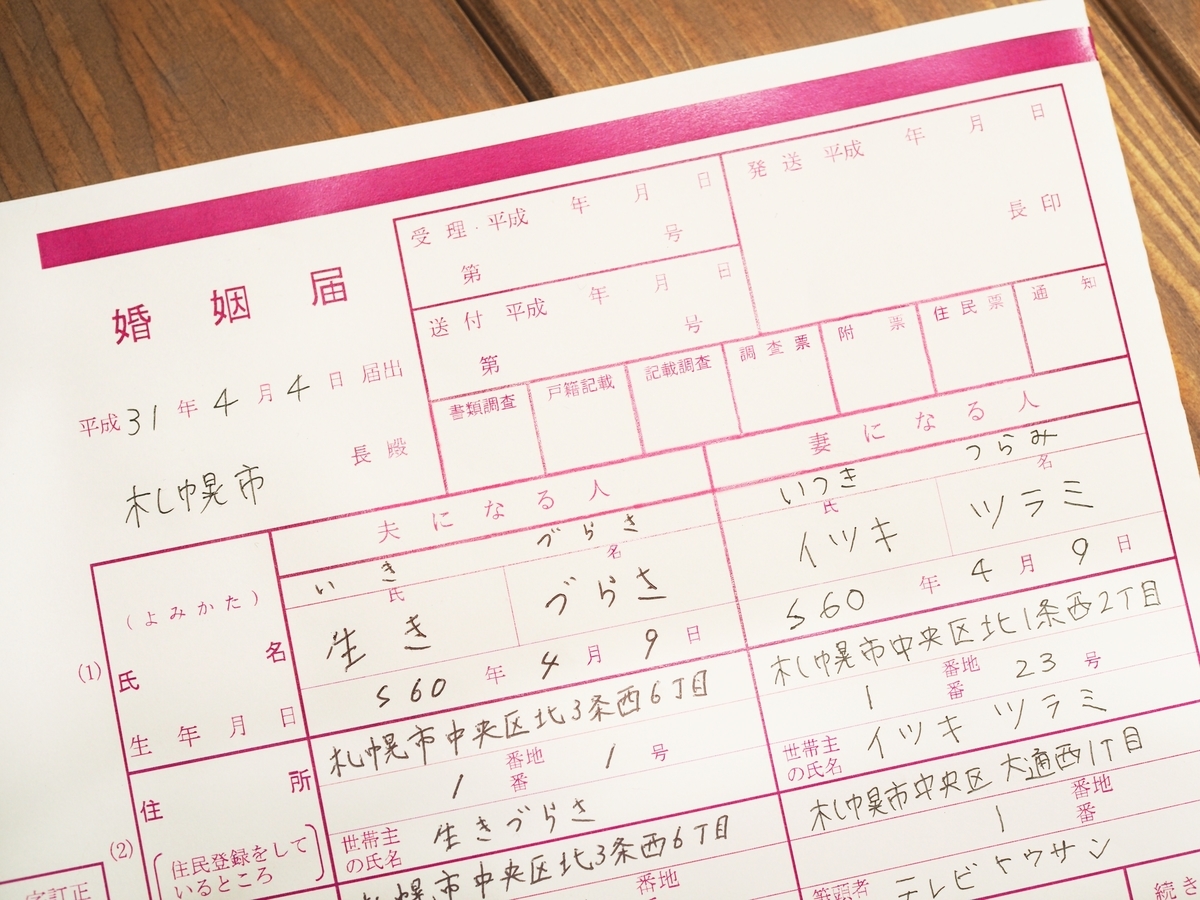 婚姻届
平成31年4月4日届出
札幌市
長殿
受理 平成 年 月 日
第 号
送付 平成 年 月 日
第 号
発送 平成 年 月 日
長印
書類調査 戸籍記載 記載調査 調査票 附票 住民票 通知
夫になる人 妻になる人
(よみかた) いき づらさ いつき つらみ
(1) 氏名 氏 名 氏 名
生き づらさ イツキ ツラミ
生年月日 S60年4月9日 S60年4月9日
(2) 住所 札幌市中央区北3条西6丁目 札幌市中央区北1条西2丁目
1 番地 番 1号 1 番地 番 23号
(住民登録をしているところ) 世帯主の氏名 生きづらさ 世帯主の氏名 イツキ ツラミ
札幌市中央区北3条西6丁目 札幌市中央区 大通西1丁目
番地 1 番地 番
字訂正 筆頭者 テレビ トウサン
続き